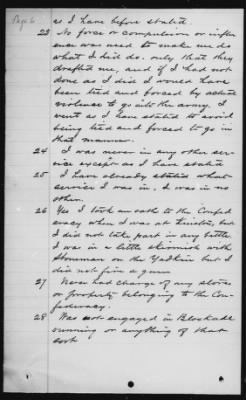 Page 6
as I have before stated.
23 No force or compulsion or influ
ence was used to make me do
what I did do. only that they
drafted me, and if I had not
done as I did I would have
been tied and forced by actual
violence to go into the army. I
went as I have stated to avoid
being tied and forced to go in
that manner.
24 I was never in any other ser-
vice except as I have stated
25 I have already stated what
service I was in. I was in no
other.
26 Yes I took an oath to the Confed
eracy when I was at Kinston, but
I did not take part in any battle
I was in a little skirmish with
Stoneman on the Yadkin but I
did not fire a gun
27 Never had charge of any stores
or property belonging to the Con-
federacy.
28 Was not engaged in Blockade
running or anything of that
sort